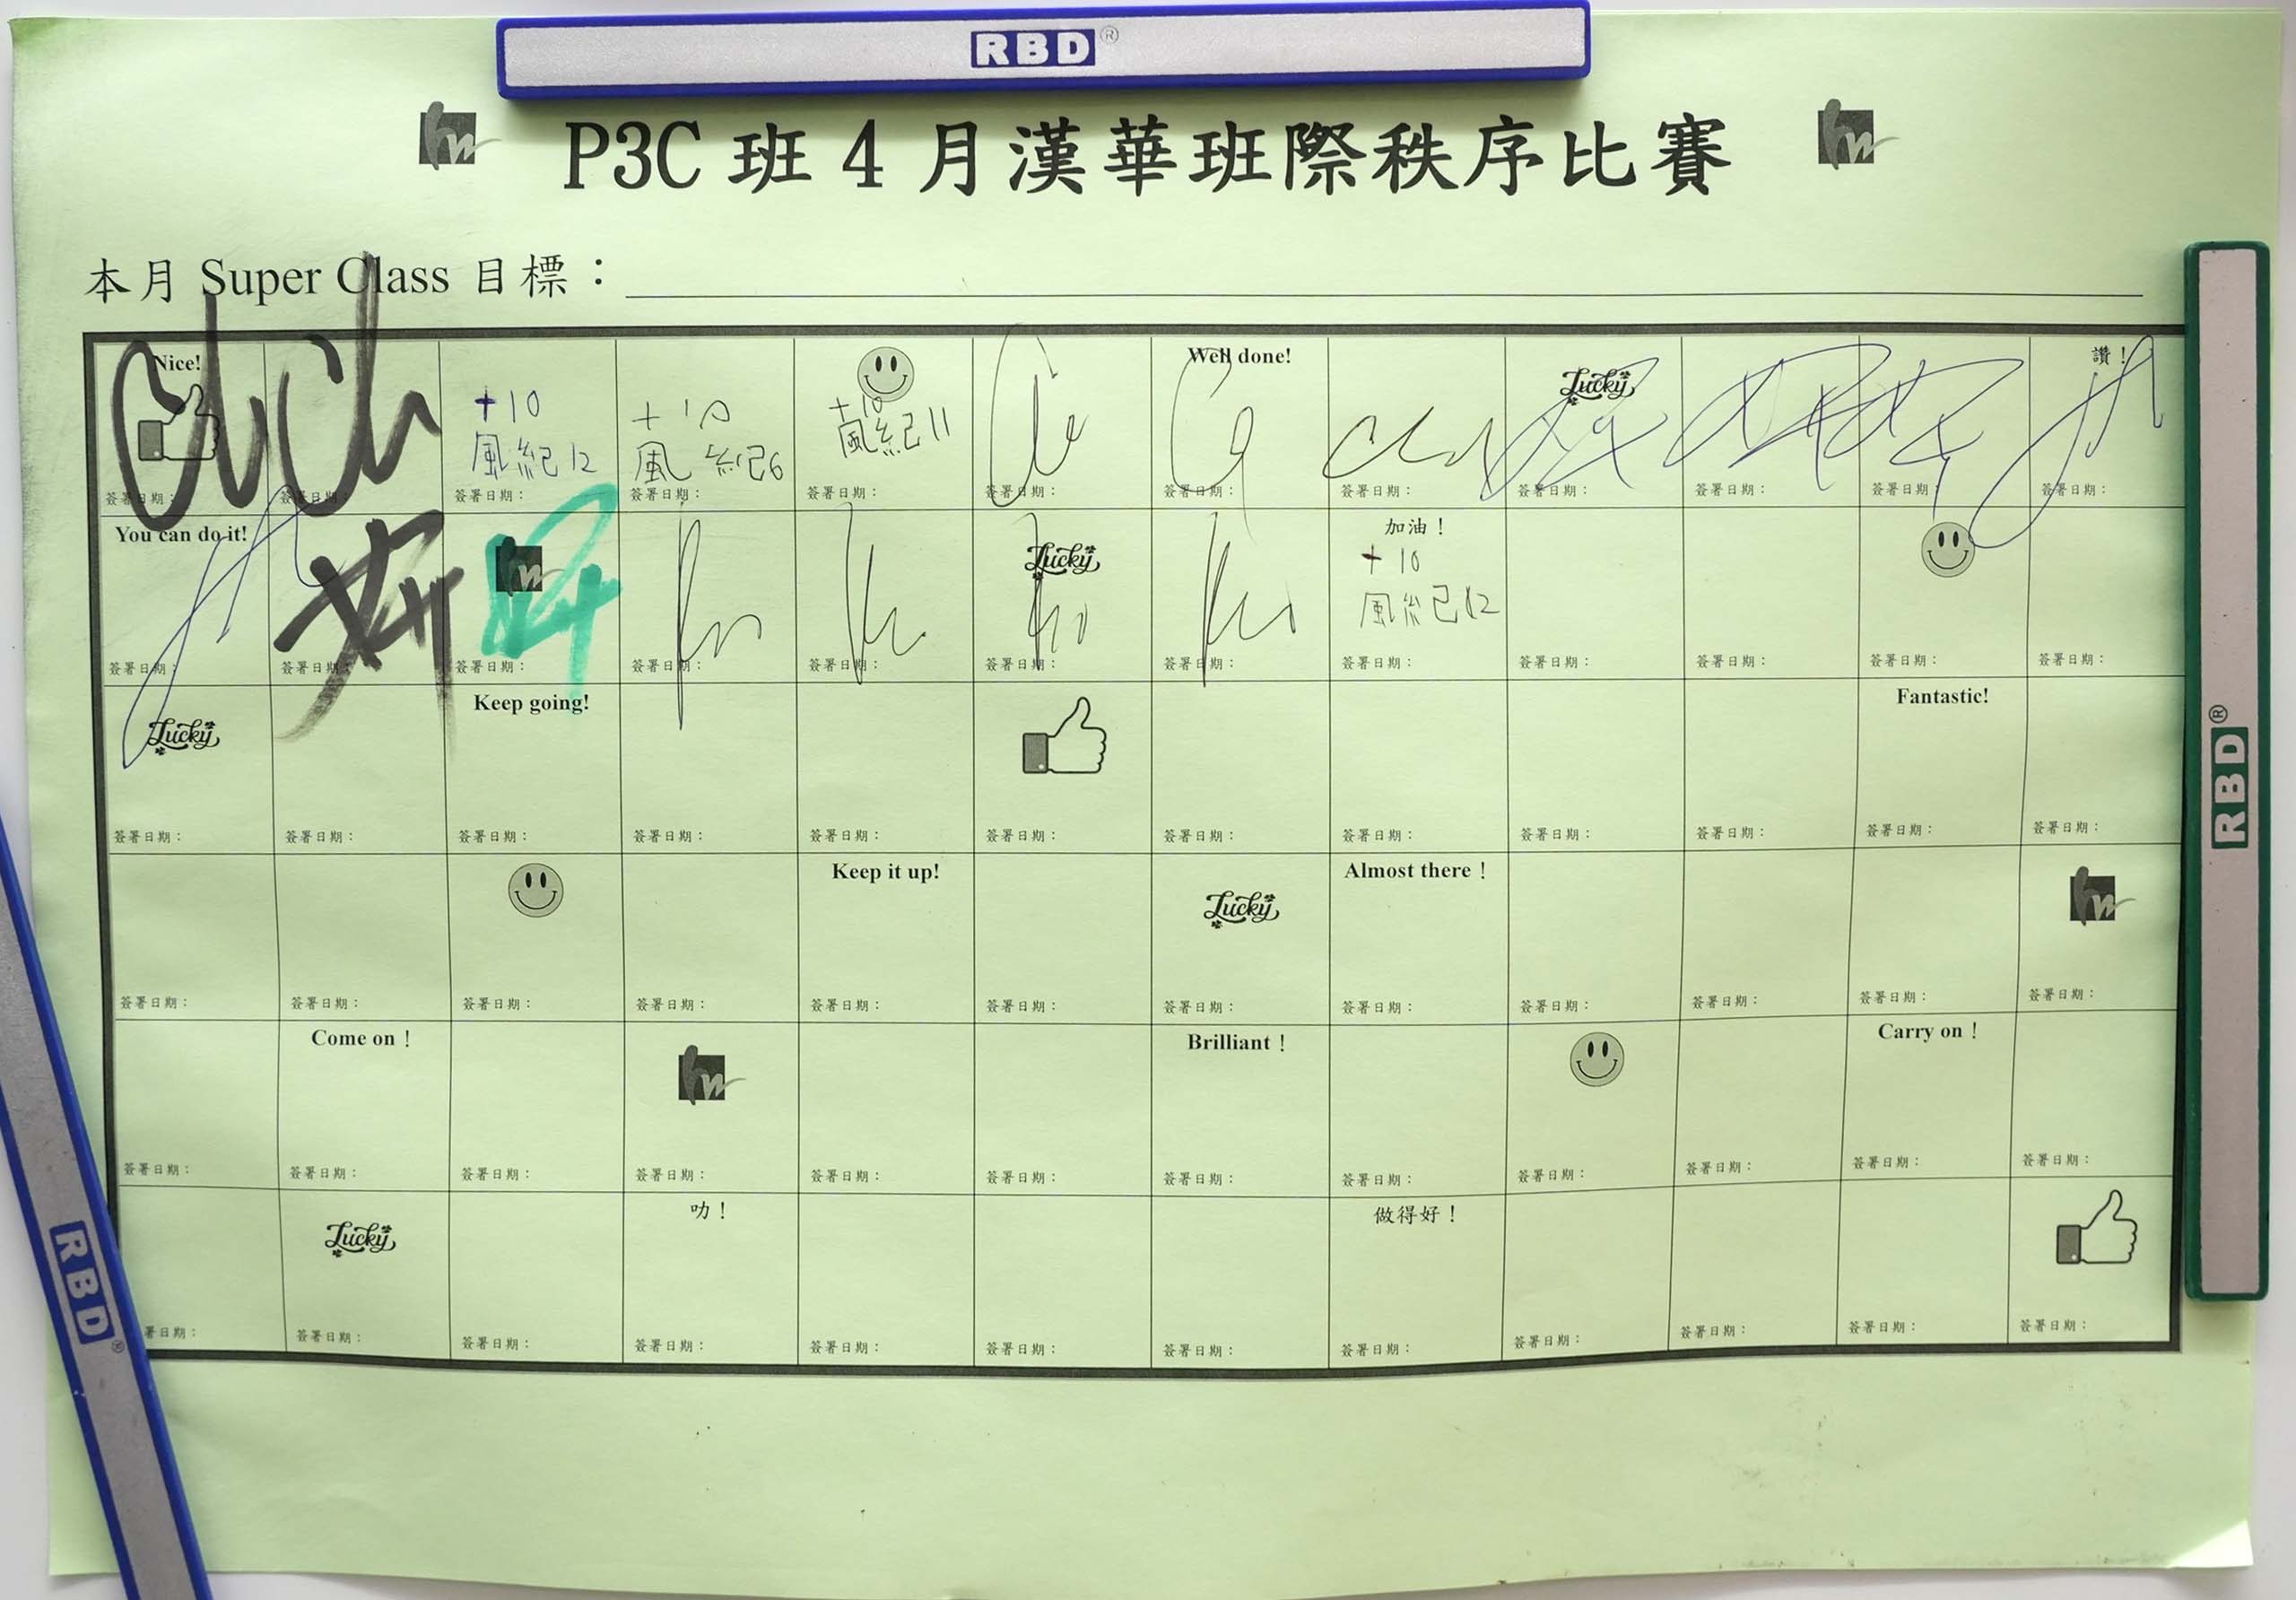 RBD®
P3C 班 4 月漢華班際秩序比賽
本月 Super Class 目標：
Nice!
Well done!
Lucky
讚！
+10
風紀12
+10
風紀6
+10
風紀11
簽署日期： 簽署日期： 簽署日期： 簽署日期： 簽署日期： 簽署日期： 簽署日期： 簽署日期： 簽署日期： 簽署日期： 簽署日期： 簽署日期：
You can do it!
Lucky
加油！
+10
風紀12
簽署日期： 簽署日期： 簽署日期： 簽署日期： 簽署日期： 簽署日期： 簽署日期： 簽署日期： 簽署日期： 簽署日期： 簽署日期： 簽署日期：
Lucky
Keep going!
Fantastic!
簽署日期： 簽署日期： 簽署日期： 簽署日期： 簽署日期： 簽署日期： 簽署日期： 簽署日期： 簽署日期： 簽署日期： 簽署日期： 簽署日期：
Keep it up!
Lucky
Almost there！
hw
簽署日期： 簽署日期： 簽署日期： 簽署日期： 簽署日期： 簽署日期： 簽署日期： 簽署日期： 簽署日期： 簽署日期： 簽署日期： 簽署日期：
Come on！
hw
Brilliant！
Carry on！
簽署日期： 簽署日期： 簽署日期： 簽署日期： 簽署日期： 簽署日期： 簽署日期： 簽署日期： 簽署日期： 簽署日期： 簽署日期： 簽署日期：
Lucky
叻！
做得好！
署日期： 簽署日期： 簽署日期： 簽署日期： 簽署日期： 簽署日期： 簽署日期： 簽署日期： 簽署日期： 簽署日期： 簽署日期： 簽署日期：
RBD®
RBD®